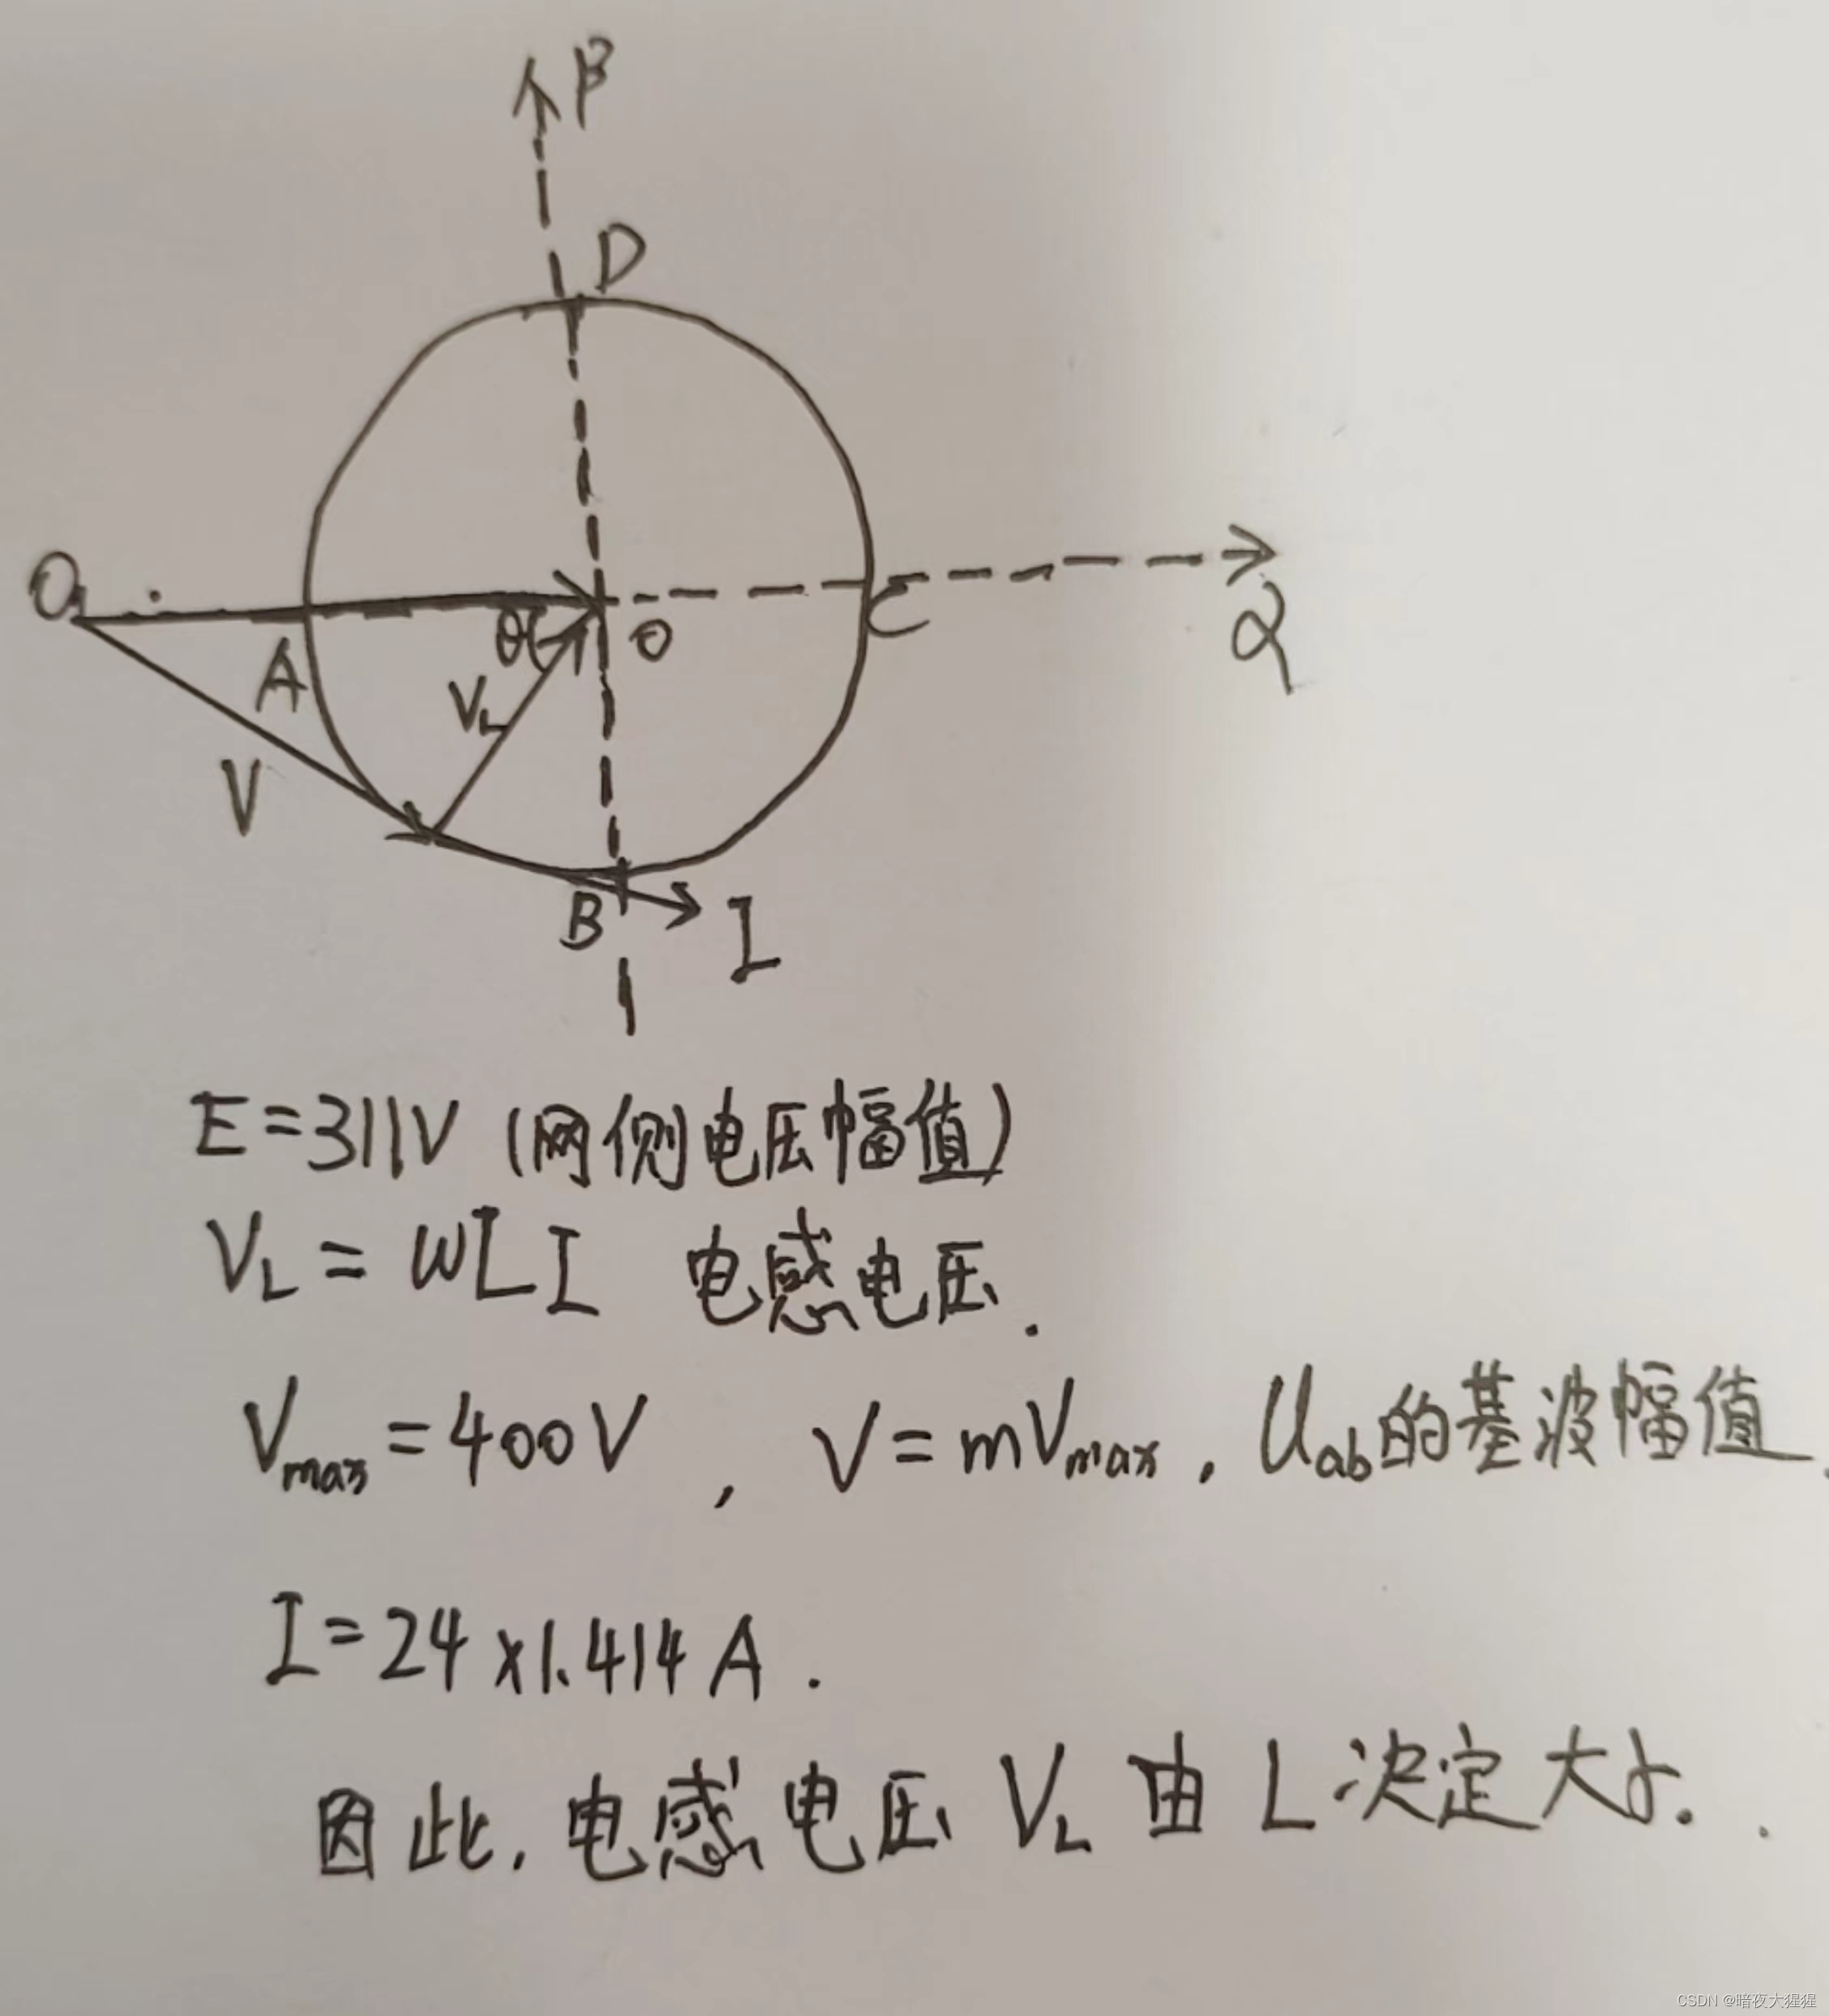 β
D
O₁
A
θ
O
C
α
V_L
V
B
I
E=311V (网侧电压幅值)
V_L = ωLI 电感电压.
V_max = 400V , V = mV_max . U_ab的基波幅值.
I=24×1.414A.
因此,电感电压 V_L 由 L 决定大小.
CSDN @暗夜大猩猩